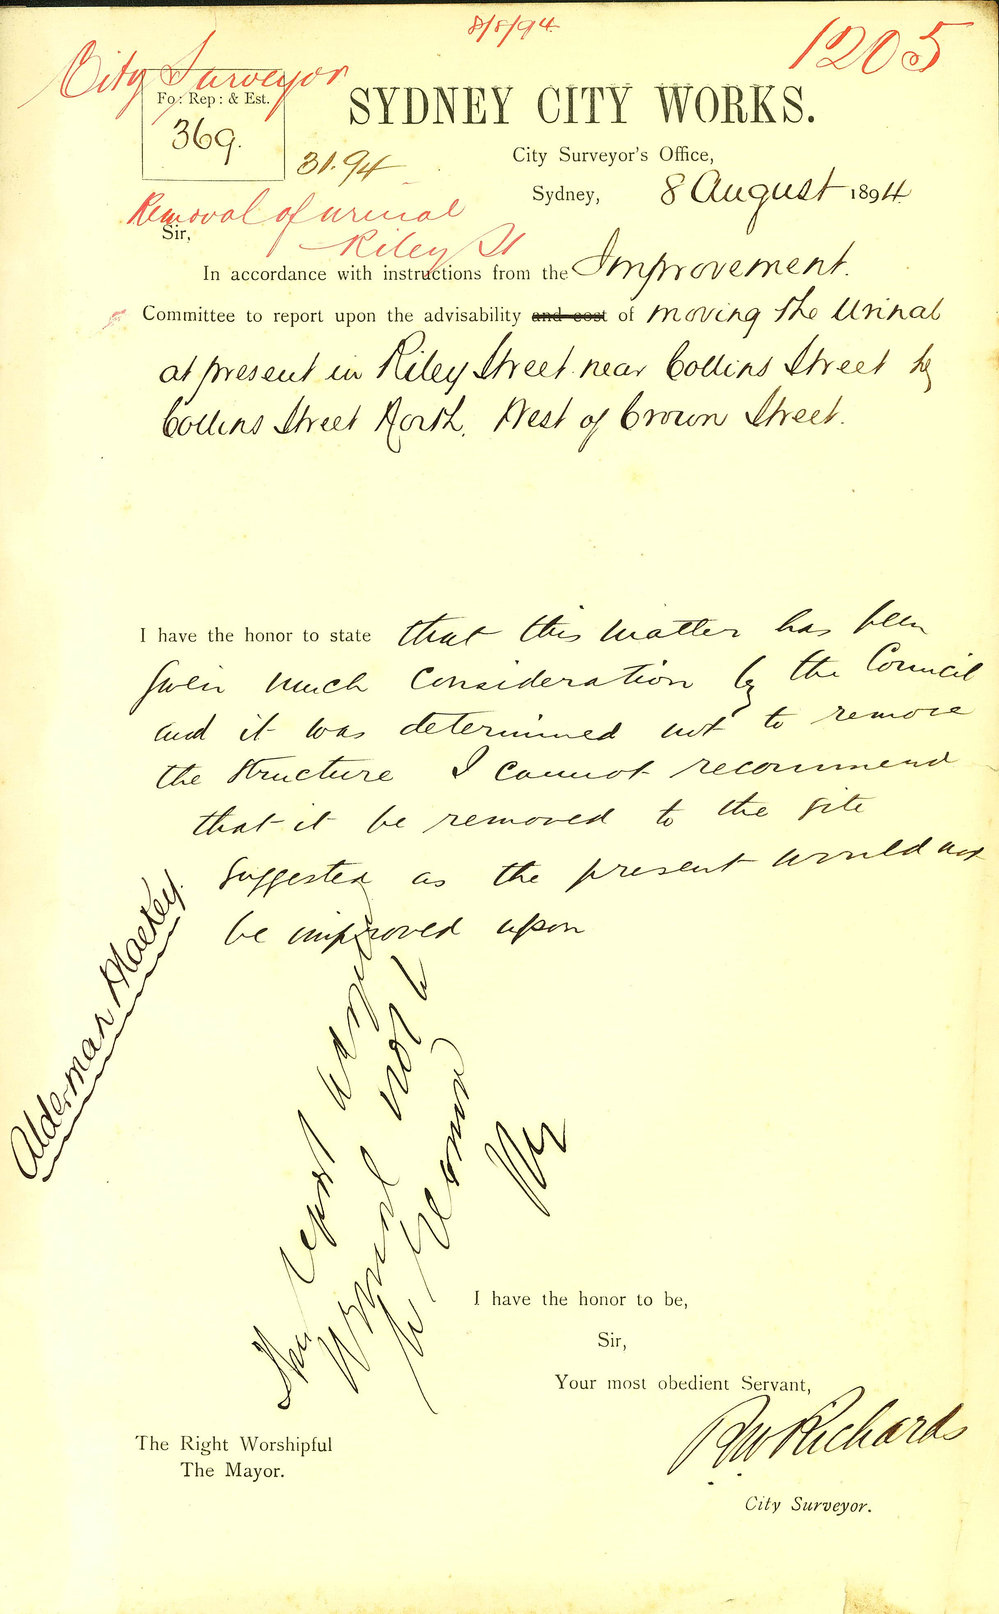 8/8/94
1205
City Surveyor
Fo: Rep: & Est.
369.
31.94
SYDNEY CITY WORKS.
City Surveyor's Office,
Sydney, 8 August 1894
Removal of urinal
Riley St
Sir,
In accordance with instructions from the Improvement.
Committee to report upon the advisability and cost of moving the Urinal
at present in Riley Street near Collins Street to
Collins Street North, West of Crown Street.
I have the honor to state that this matter has been
given much consideration by the Council
and it was determined not to remove
the structure I cannot recommend
that it be removed to the site
suggested as the present would not
be improved upon
Alderman Mackey.
The report
Urinal not to
be
I have the honor to be,
Sir,
Your most obedient Servant,
RW Richards
City Surveyor.
The Right Worshipful
The Mayor.